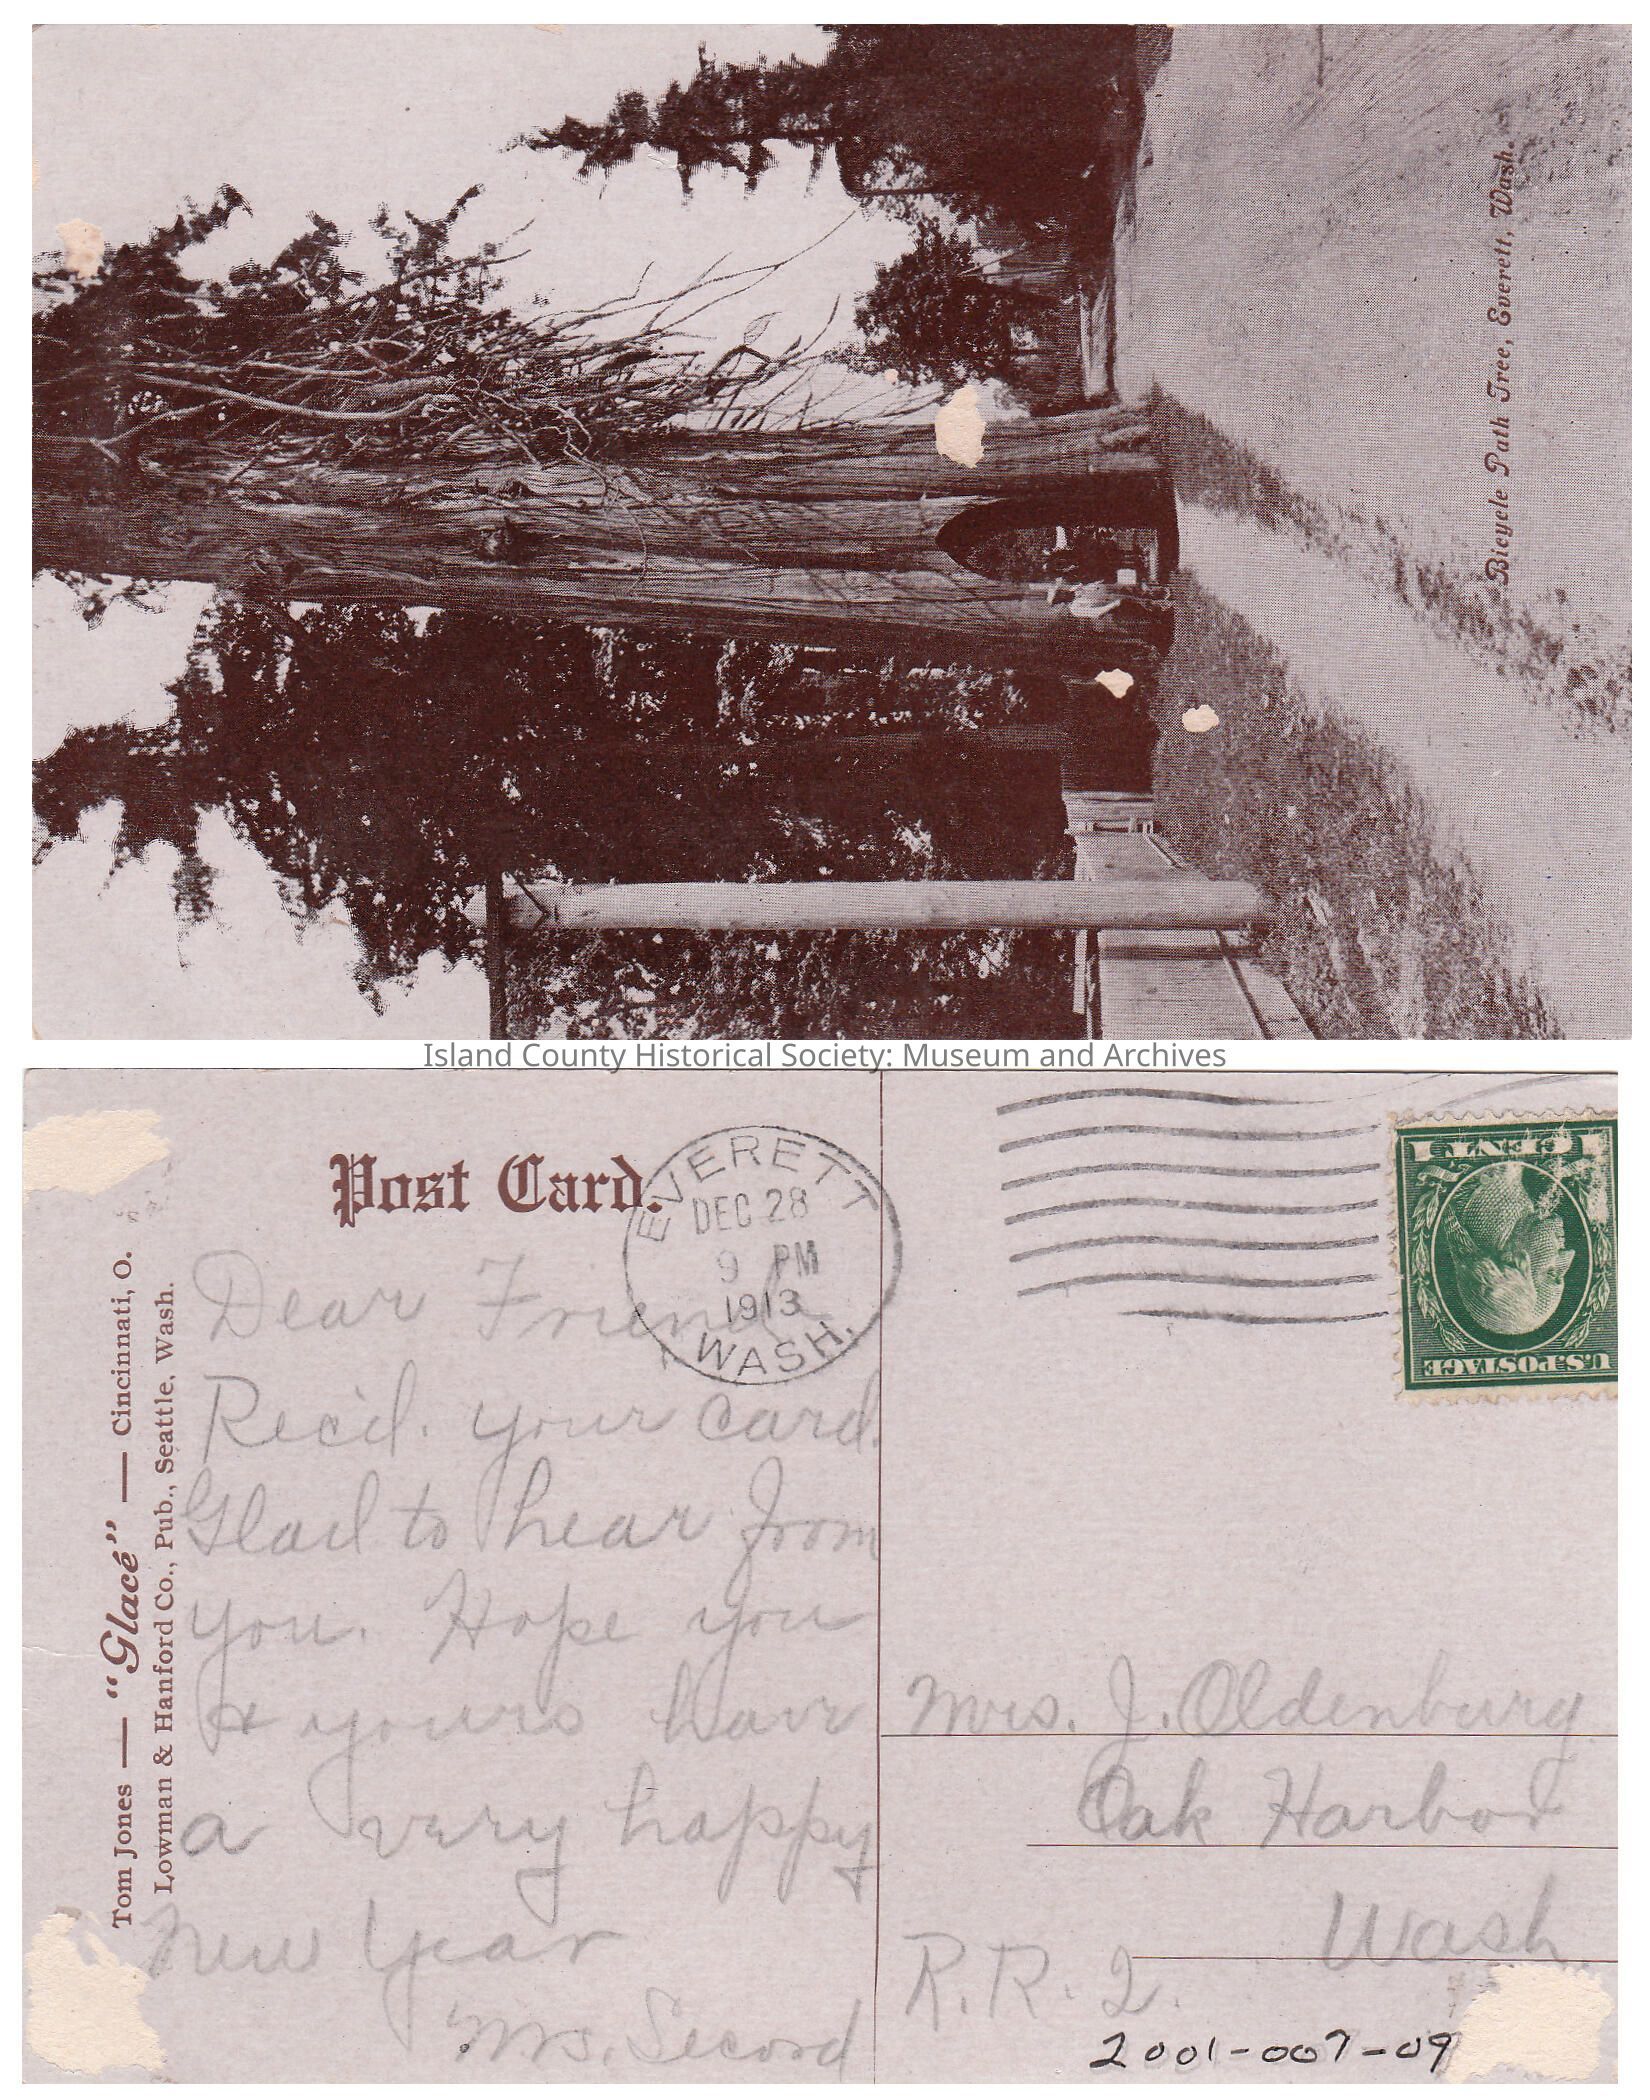 Bicycle Path Tree, Everett, Wash.
Island County Historical Society: Museum and Archives
Post Card.
EVERETT
DEC 28
9 PM
1913
WASH.
1 CENT 1
U.S. POSTAGE
Tom Jones — "Glacé" — Cincinnati, O.
Lowman & Hanford Co., Pub., Seattle, Wash.
Dear Friend
Rec'd. your card.
Glad to hear from
you. Hope you
& yours have
a very happy
New Year
Mrs. Secord
Mrs. J. Oldenburg
Oak Harbor
Wash.
R.R. 2.
2001-007-09